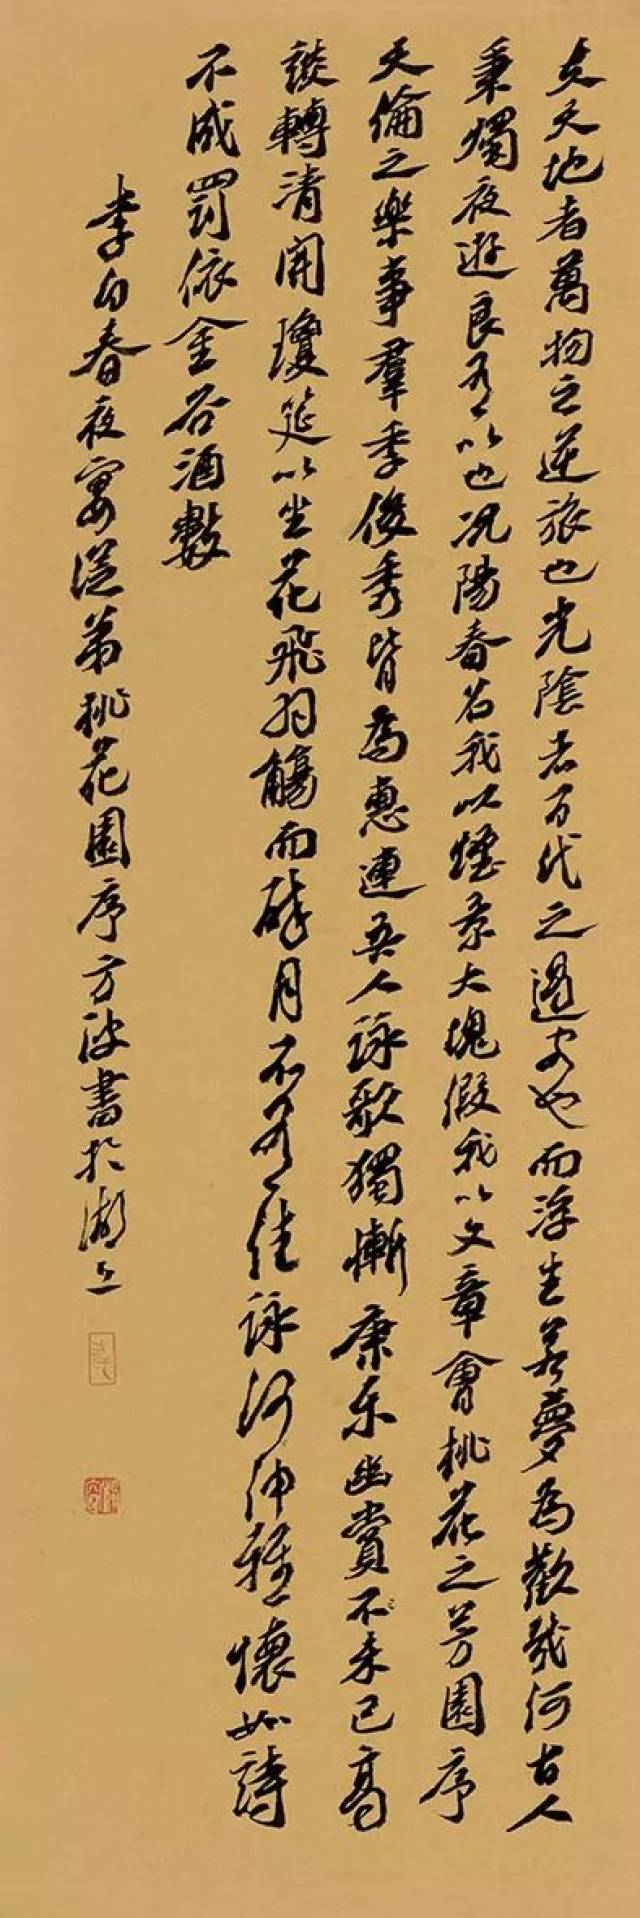 夫天地者萬物之逆旅也光陰者百代之過客也而浮生若夢為歡幾何古人
秉燭夜遊良有以也況陽春召我以煙景大塊假我以文章會桃花之芳園序
天倫之樂事羣季俊秀皆為惠連吾人詠歌獨慚康樂幽賞不未已高
談轉清開瓊筵以坐花飛羽觴而醉月不有佳詠何伸雅懷如詩
不成罰依金谷酒數
李白春夜宴從弟桃花園序方波書於湖上